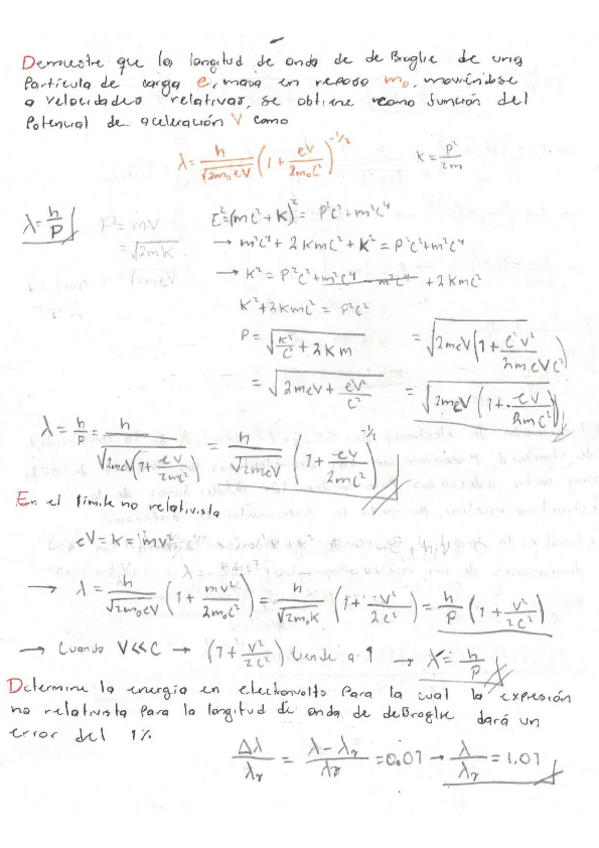 Demuestre que la longitud de onda de de Broglie de una
partícula de carga e, masa en reposo m₀, moviéndose
a velocidades relativas, se obtiene como función del
Potencial de aceleración V como
λ = h/√(2m₀eV) (1 + eV/2m₀c²)^(-1/2) K = P²/2m
λ = h/P P = mV E² = (mc² + K)² = P²c² + m²c⁴
= √2mK → m²c⁴ + 2Kmc² + K² = P²c² + m²c⁴
= √2meV → K² = P²c² + m²c⁴ - m²c⁴ + 2Kmc²
K² + 2Kmc² = P²c²
P = √(K²/c² + 2Km) = √(2meV(1 + e²V²/2meVc²))
= √(2meV + eV²/c²) = √(2meV(1 + eV/2mc²))
λ = h/P = h/√(2meV(1 + eV/2mc²)) = h/√(2meV) (1 + eV/2mc²)^(-1/2)
En el límite no relativista
eV = K = ½mv²
→ λ = h/√(2m₀eV) (1 + mv²/2m₀c²) = h/√(2m₀K) (1 + v²/2c²) = h/P (1 + v²/2c²)
→ Cuando V<<C → (1 + v²/2c²) tiende a 1 → λ = h/P
Determine la energía en electronvolts para la cual la expresión
no relativista para la longitud de onda de deBroglie dará un
error del 1%
Δλ/λr = (λ - λr)/λr = 0.01 → λ/λr = 1.01